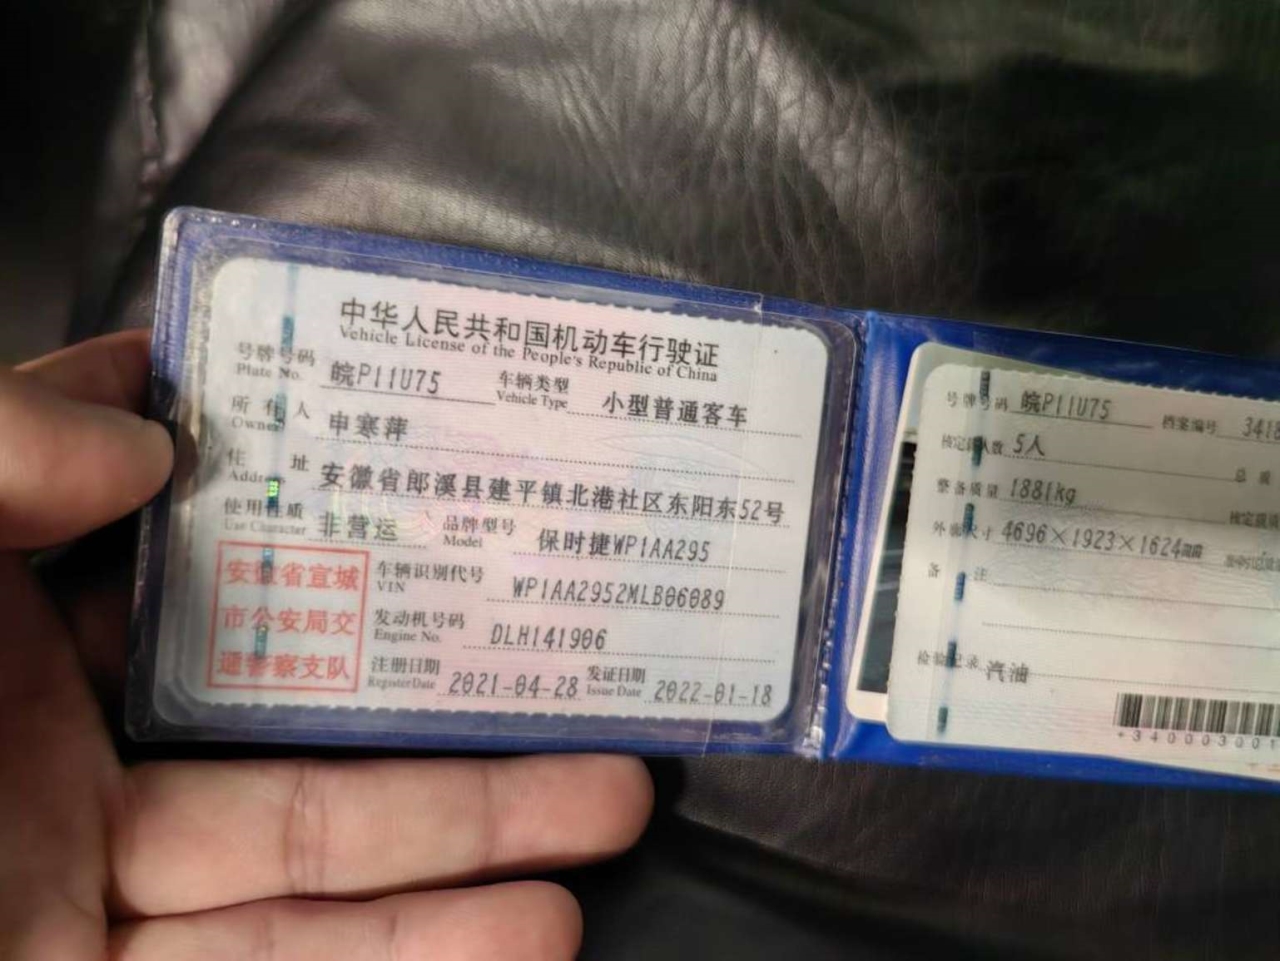 中华人民共和国机动车行驶证
Vehicle License of the People's Republic of China
号牌号码 皖P11U75 车辆类型 小型普通客车
Plate No. Vehicle Type
所有人 申寒萍
Owner
住址 安徽省郎溪县建平镇北港社区东阳东52号
Address
使用性质 非营运 品牌型号 保时捷WP1AA295
Use Character Model
车辆识别代号 WP1AA2952MLB06089
VIN
发动机号码 DLH141906
Engine No.
注册日期 2021-04-28 发证日期 2022-01-18
Register Date Issue Date
安徽省宣城
市公安局交
通警察支队
号牌号码 皖P11U75 档案编号 3418
核定载人数 5人 总质
整备质量 1881kg 核定载质
外廓尺寸 4696×1923×1624mm
备注
检验记录 汽油
+340003001